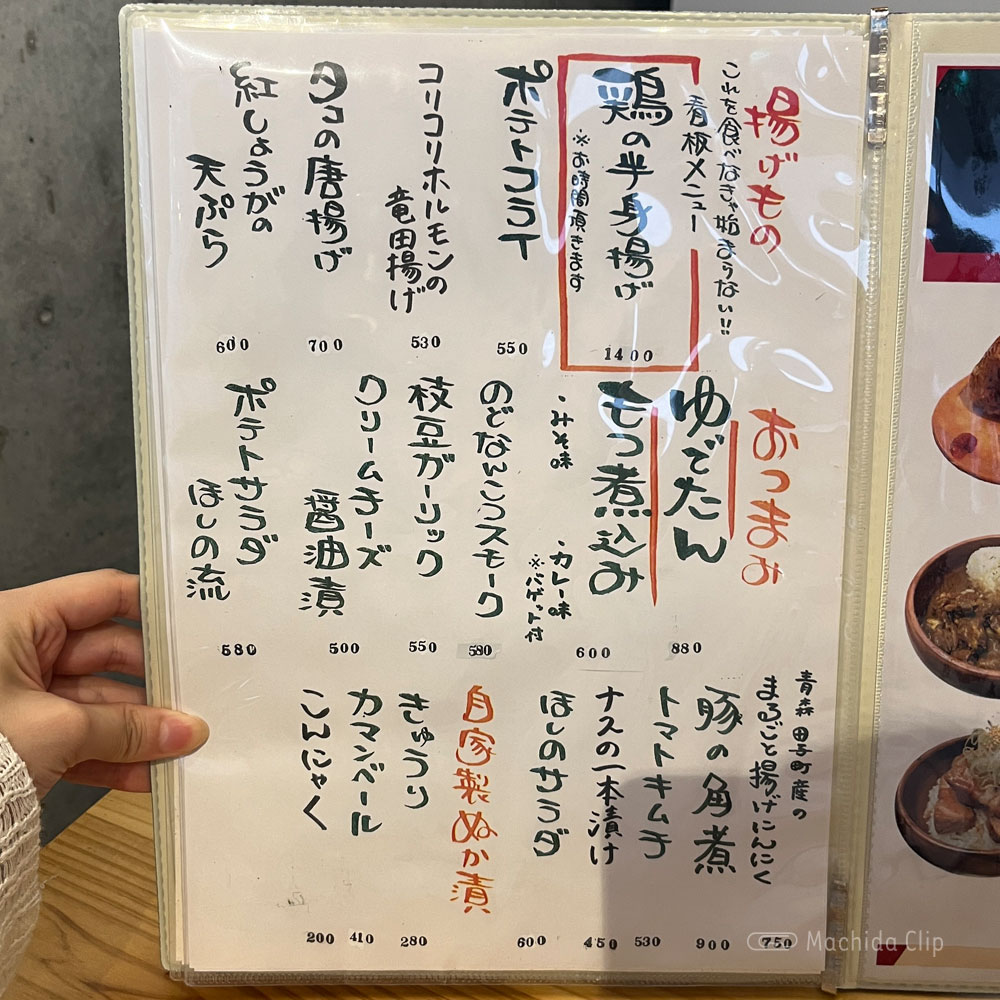 揚げもの
これを食べなきゃ始まらない!!
看板メニュー
鶏の半身揚げ
※お時間頂きます
1400
ポテトフライ
550
コリコリホルモンの
竜田揚げ
530
タコの唐揚げ
700
紅しょうがの
天ぷら
600
おつまみ
ゆでたん
880
もつ煮込み
・みそ味
・カレー味
※バゲット付
600
のどなんこつスモーク
580
枝豆ガーリック
550
クリームチーズ
醤油漬
500
ポテトサラダ
ほしの流
580
青森 田子町産の
まるごと揚げにんにく
750
豚の角煮
900
トマトキムチ
530
ナスの一本漬け
450
ほしのサラダ
600
自家製ぬか漬
きゅうり
280
カマンベール
410
こんにゃく
200
Machida Clip